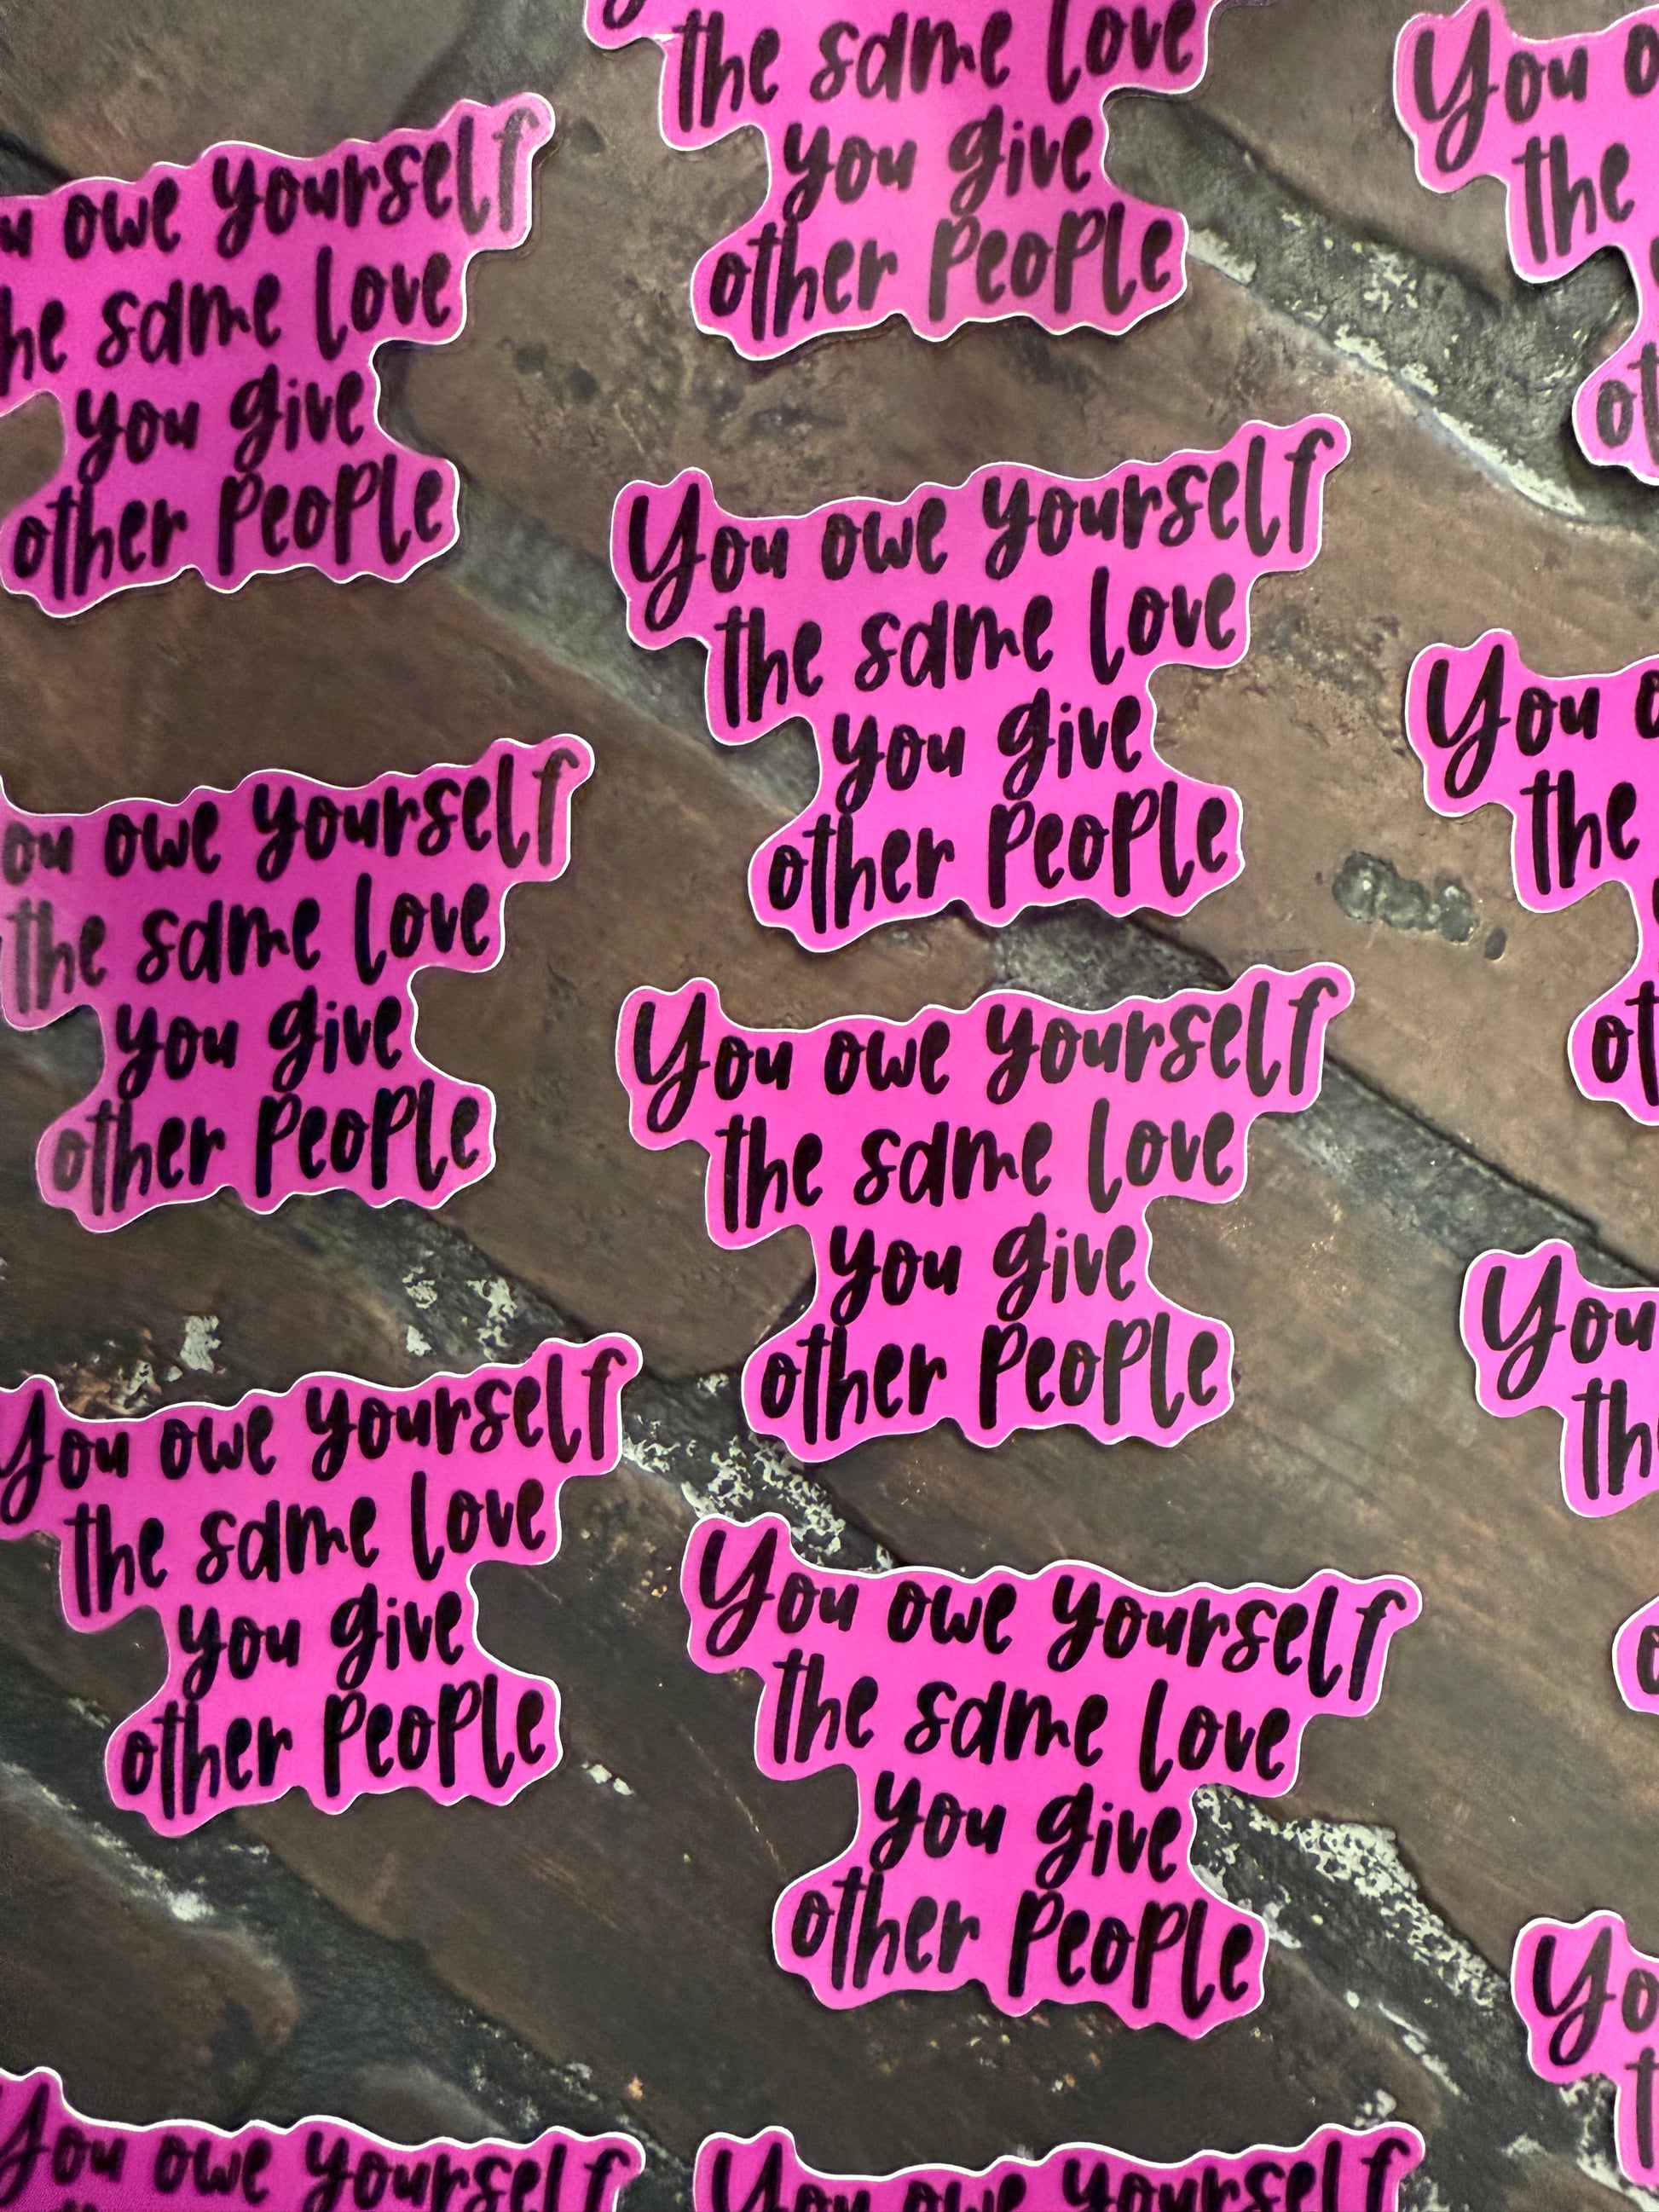 the same love
you give
other People
You o
the
ot
u owe yourself
he same love
you give
other People
You owe yourself
the same love
you give
other People
You o
the
ot
ou owe yourself
the same love
you give
other People
You owe yourself
the same love
you give
other People
You
th
o
You owe yourself
the same love
you give
other People
You owe yourself
the same love
you give
other People
Yo
t
You owe yourself
You owe yourself